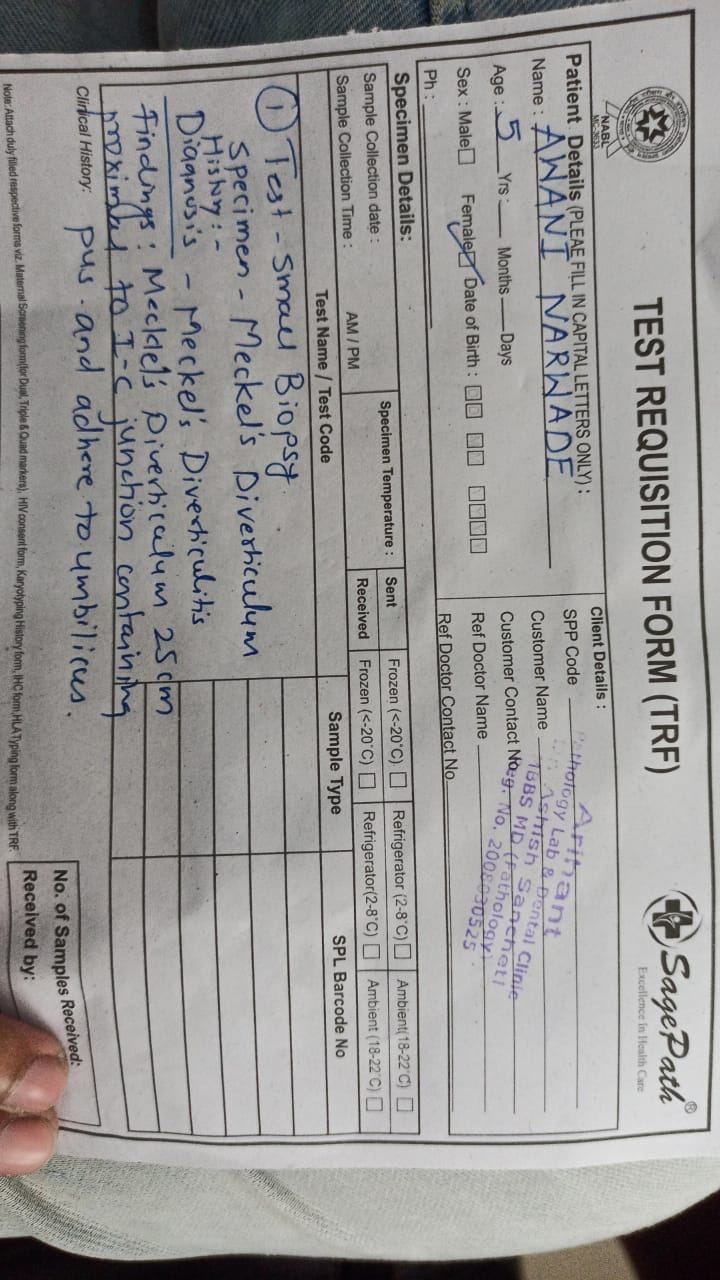 NABL
MC-2633
TEST REQUISITION FORM (TRF)
SagePath®
Excellence In Health Care
Patient Details (PLEAE FILL IN CAPITAL LETTERS ONLY) :
Name : AWANI NARWADE
Age : 5 Yrs : Months Days
Sex : Male Female Date of Birth :
Ph :
Client Details :
SPP Code
Customer Name
Customer Contact No.
Ref Doctor Name
Ref Doctor Contact No.
Arihant
Pathology Lab & Dental Clinic
Ashish Sancheti
MBBS MD (Pathology)
Reg. No. 2008030525
Specimen Details:
Sample Collection date :
Sample Collection Time : AM / PM
Specimen Temperature :
Sent Frozen (<-20°C) Refrigerator (2-8°C) Ambient(18-22°C)
Received Frozen (<-20°C) Refrigerator(2-8°C) Ambient (18-22°C)
Test Name / Test Code Sample Type SPL Barcode No
① Test - Small Biopsy.
Specimen - Meckel's Diverticulum
History:-
Diagnosis - Meckel's Diverticulitis
Findings : Meckel's Diverticulum 25cm
proximal to I-C junction containing
Clinical History: pus. and adhere to umbilicus.
No. of Samples Received:
Received by:
Note: Attach duly filled respective forms viz. Maternal Screening form(for Dual, Triple & Quad markers), HIV consent form, Karyotyping History form, IHC form, HLA Typing form along with TRF.